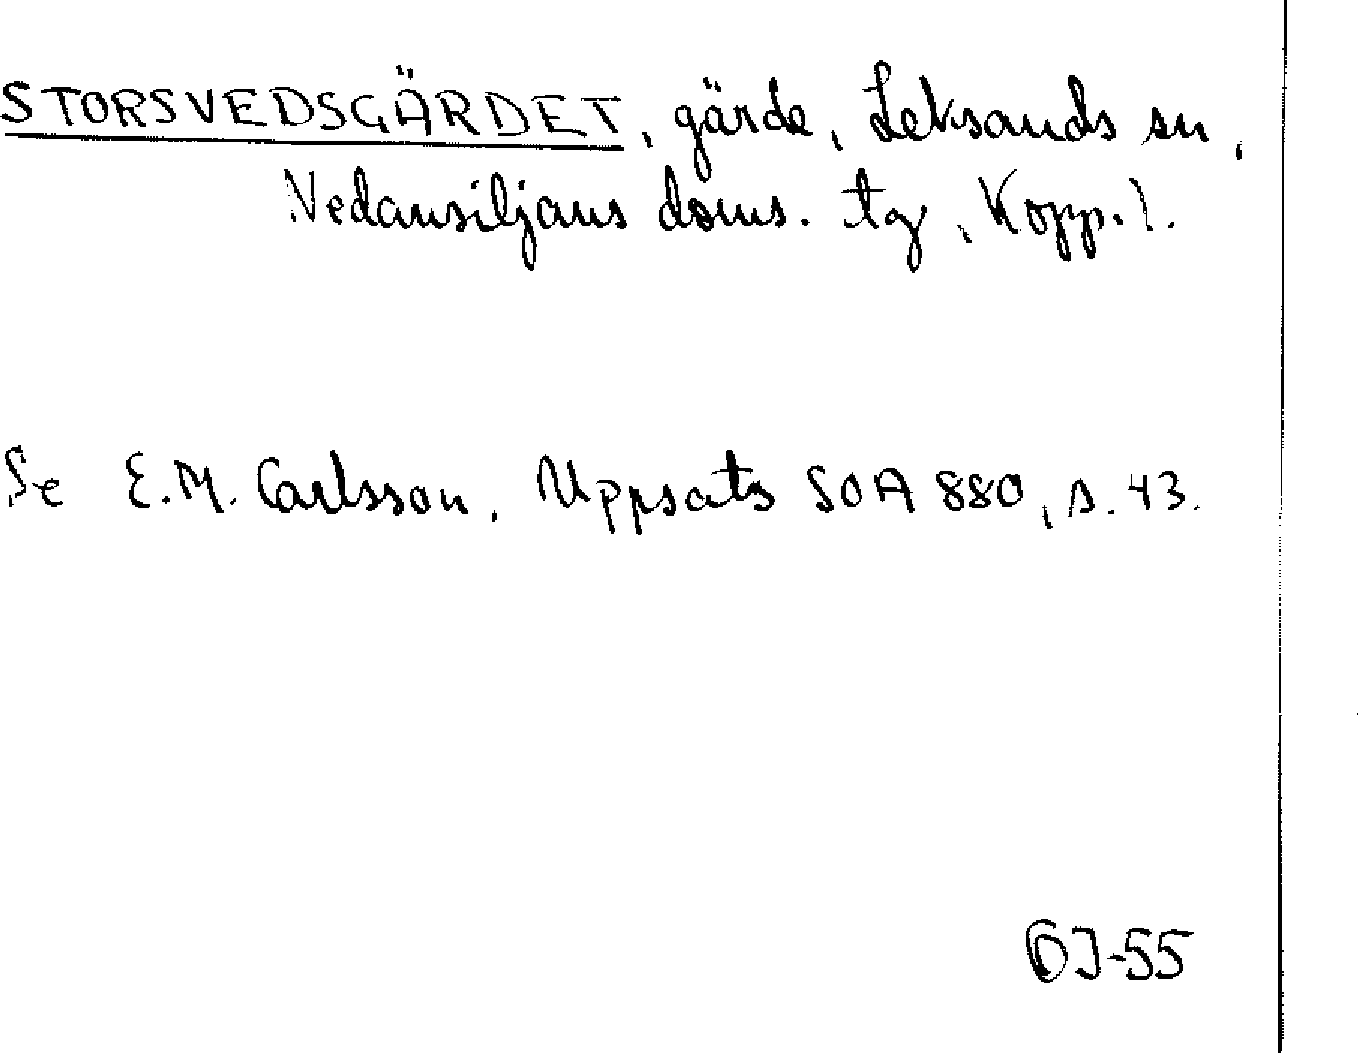 STORSVEDSGÄRDET, gärde, Leksands sn,
Nedansiljans doms. tg, Kopp.l.
Se E.M. Carlsson, Uppsats SOA 880, s. 43.